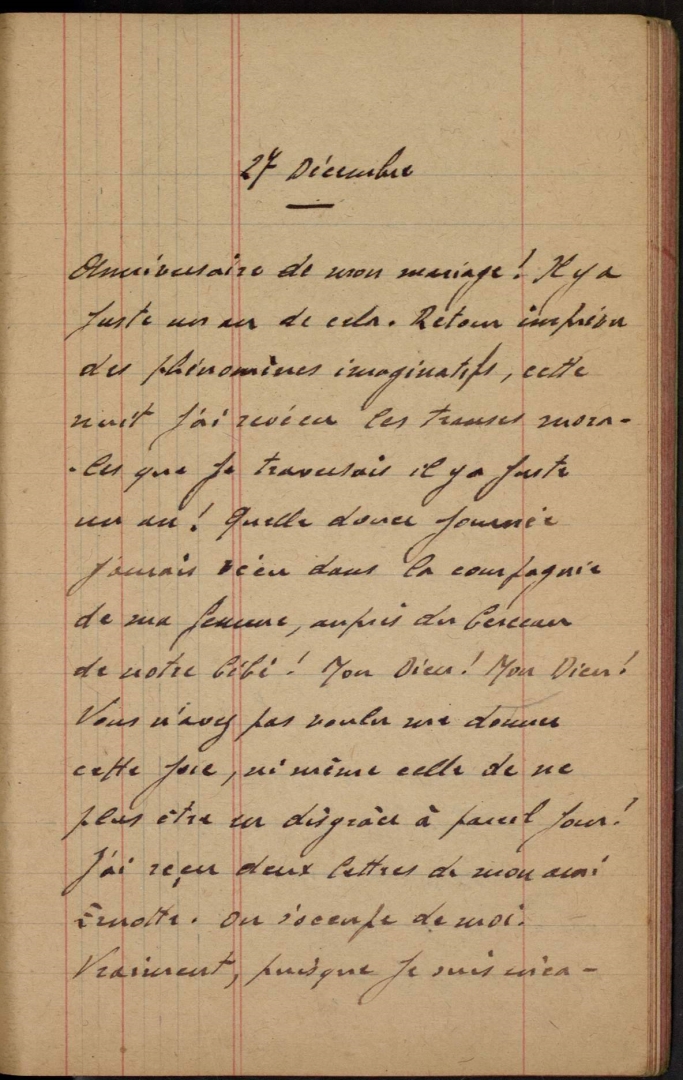 27 Décembre
Anniversaire de mon mariage! Il y a
juste un an de cela. Retour imprévu
des phénomènes imaginatifs, cette
nuit j'ai revécu les transes mora-
-les que je traversais il y a juste
un an! Quelle douce journée
j'aurais vécu dans la compagnie
de ma femme, auprès du berceau
de notre bébé! Mon Dieu! Mon Dieu!
Vous n'avez pas voulu me donner
cette joie, ni même celle de ne
plus être en disgrâce à pareil jour!
J'ai reçu deux lettres de mon ami
. On s'occupe de moi.
Vraiment, puisque je suis